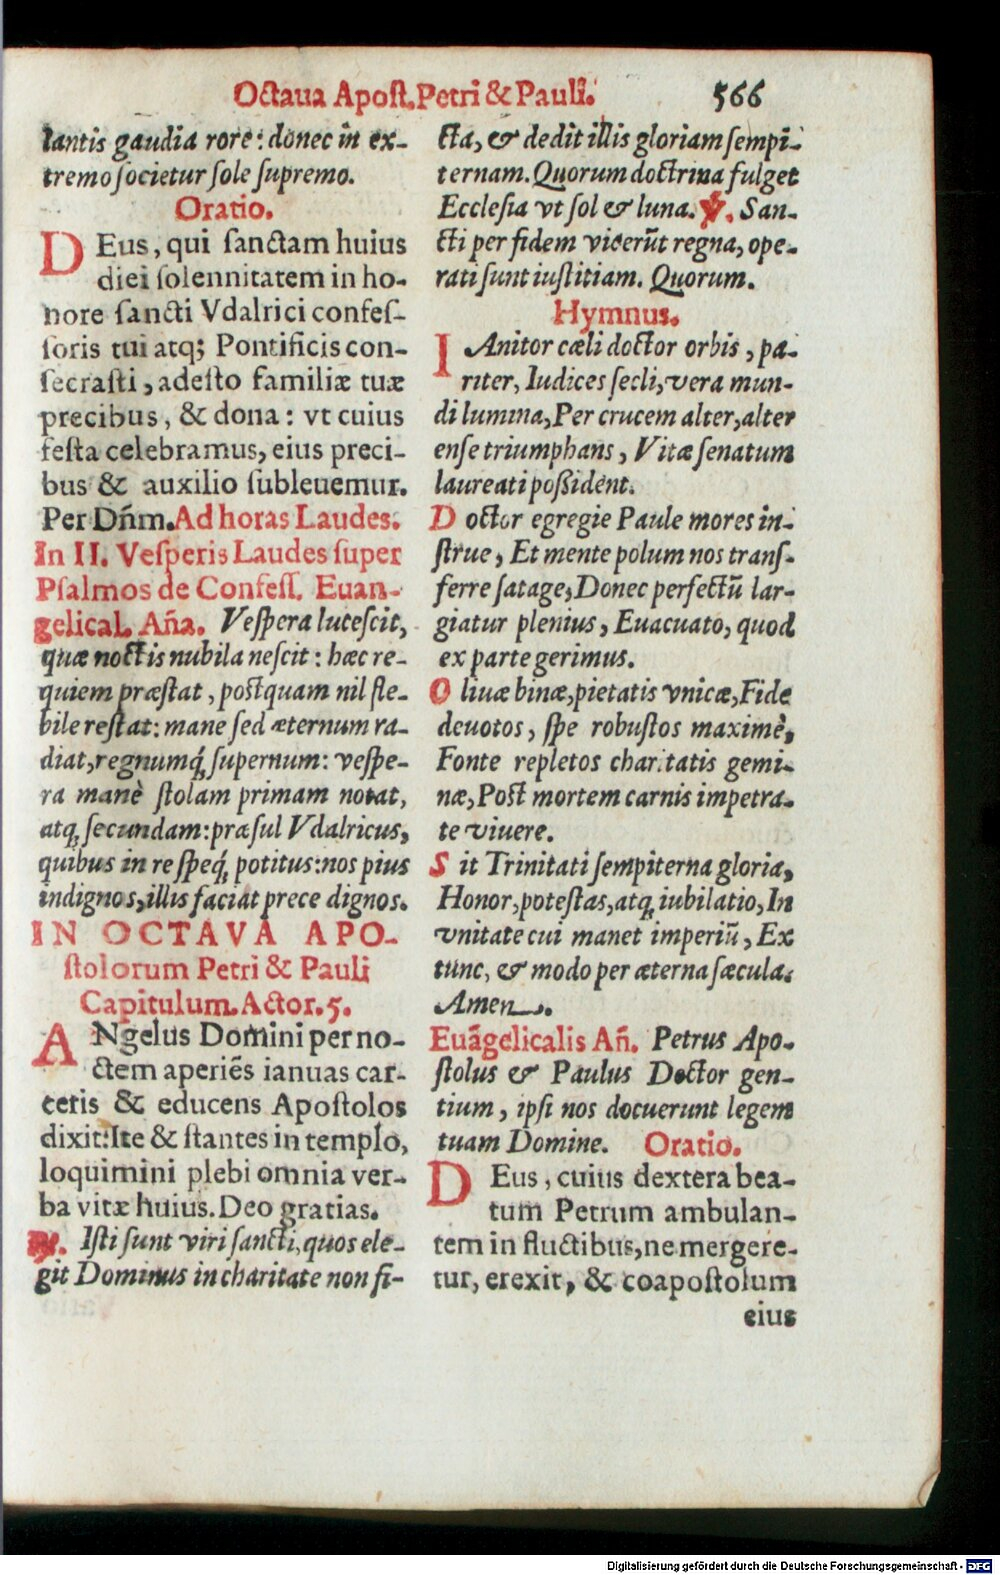 Octaua Apoſt. Petri & Pauli. 566
lantis gaudia rore: donec in ex-
tremo ſocietur ſole ſupremo.
Oratio.
DEus, qui ſanctam huius
diei ſolennitatem in ho-
nore ſancti Vdalrici confeſ-
ſoris tui atq; Pontificis con-
ſecraſti, adeſto familiæ tuæ
precibus, & dona: vt cuius
feſta celebramus, eius preci-
bus & auxilio ſubleuemur.
Per Dñm. Ad horas Laudes.
In II. Veſperis Laudes ſuper
Pſalmos de Confeſſ. Euan-
gelical. Aña. Veſpera luceſcit,
quæ noctis nubila neſcit: hæc re-
quiem præſtat, poſtquam nil fle-
bile reſtat: mane ſed æternum ra-
diat, regnumq́; ſupernum: veſpe-
ra manè ſtolam primam notat,
atq; ſecundam: præſul Vdalricus,
quibus in re ſpeq́; potitus: nos pius
indignos, illis faciat prece dignos.
IN OCTAVA APO-
ſtolorum Petri & Pauli
Capitulum. Actor. 5.
ANgelus Domini per no-
ctem aperiẽs ianuas car-
ceris & educens Apoſtolos
dixit: Ite & ſtantes in templo,
loquimini plebi omnia ver-
ba vitæ huius. Deo gratias.
℟. Iſti ſunt viri ſancti, quos ele-
git Dominus in charitate non fi-
cta, & dedit illis gloriam ſempi-
ternam. Quorum doctrina fulget
Eccleſia vt ſol & luna. ℣. San-
cti per fidem vicerũt regna, ope-
rati ſunt iuſtitiam. Quorum.
Hymnus.
IAnitor cæli doctor orbis, pa-
riter, Iudices ſecli, vera mun-
di lumina, Per crucem alter, alter
enſe triumphans, Vitæ ſenatum
laureati poßident.
Doctor egregie Paule mores in-
ſtrue, Et mente polum nos tranſ-
ferre ſatage, Donec perfectũ lar-
giatur plenius, Euacuato, quod
ex parte gerimus.
Oliuæ binæ, pietatis vnicæ, Fide
deuotos, ſpe robuſtos maximè,
Fonte repletos charitatis gemi-
næ, Poſt mortem carnis impetra-
te viuere.
Sit Trinitati ſempiterna gloria,
Honor, poteſtas, atq; iubilatio, In
vnitate cui manet imperiũ, Ex
tunc, & modo per æterna ſæcula.
Amen.
Euãgelicalis Añ. Petrus Apo-
ſtolus & Paulus Doctor gen-
tium, ipſi nos docuerunt legem
tuam Domine. Oratio.
DEus, cuius dextera bea-
tum Petrum ambulan-
tem in fluctibus, ne mergere-
tur, erexit, & coapoſtolum
eius
Digitalisierung gefördert durch die Deutsche Forschungsgemeinschaft - DFG